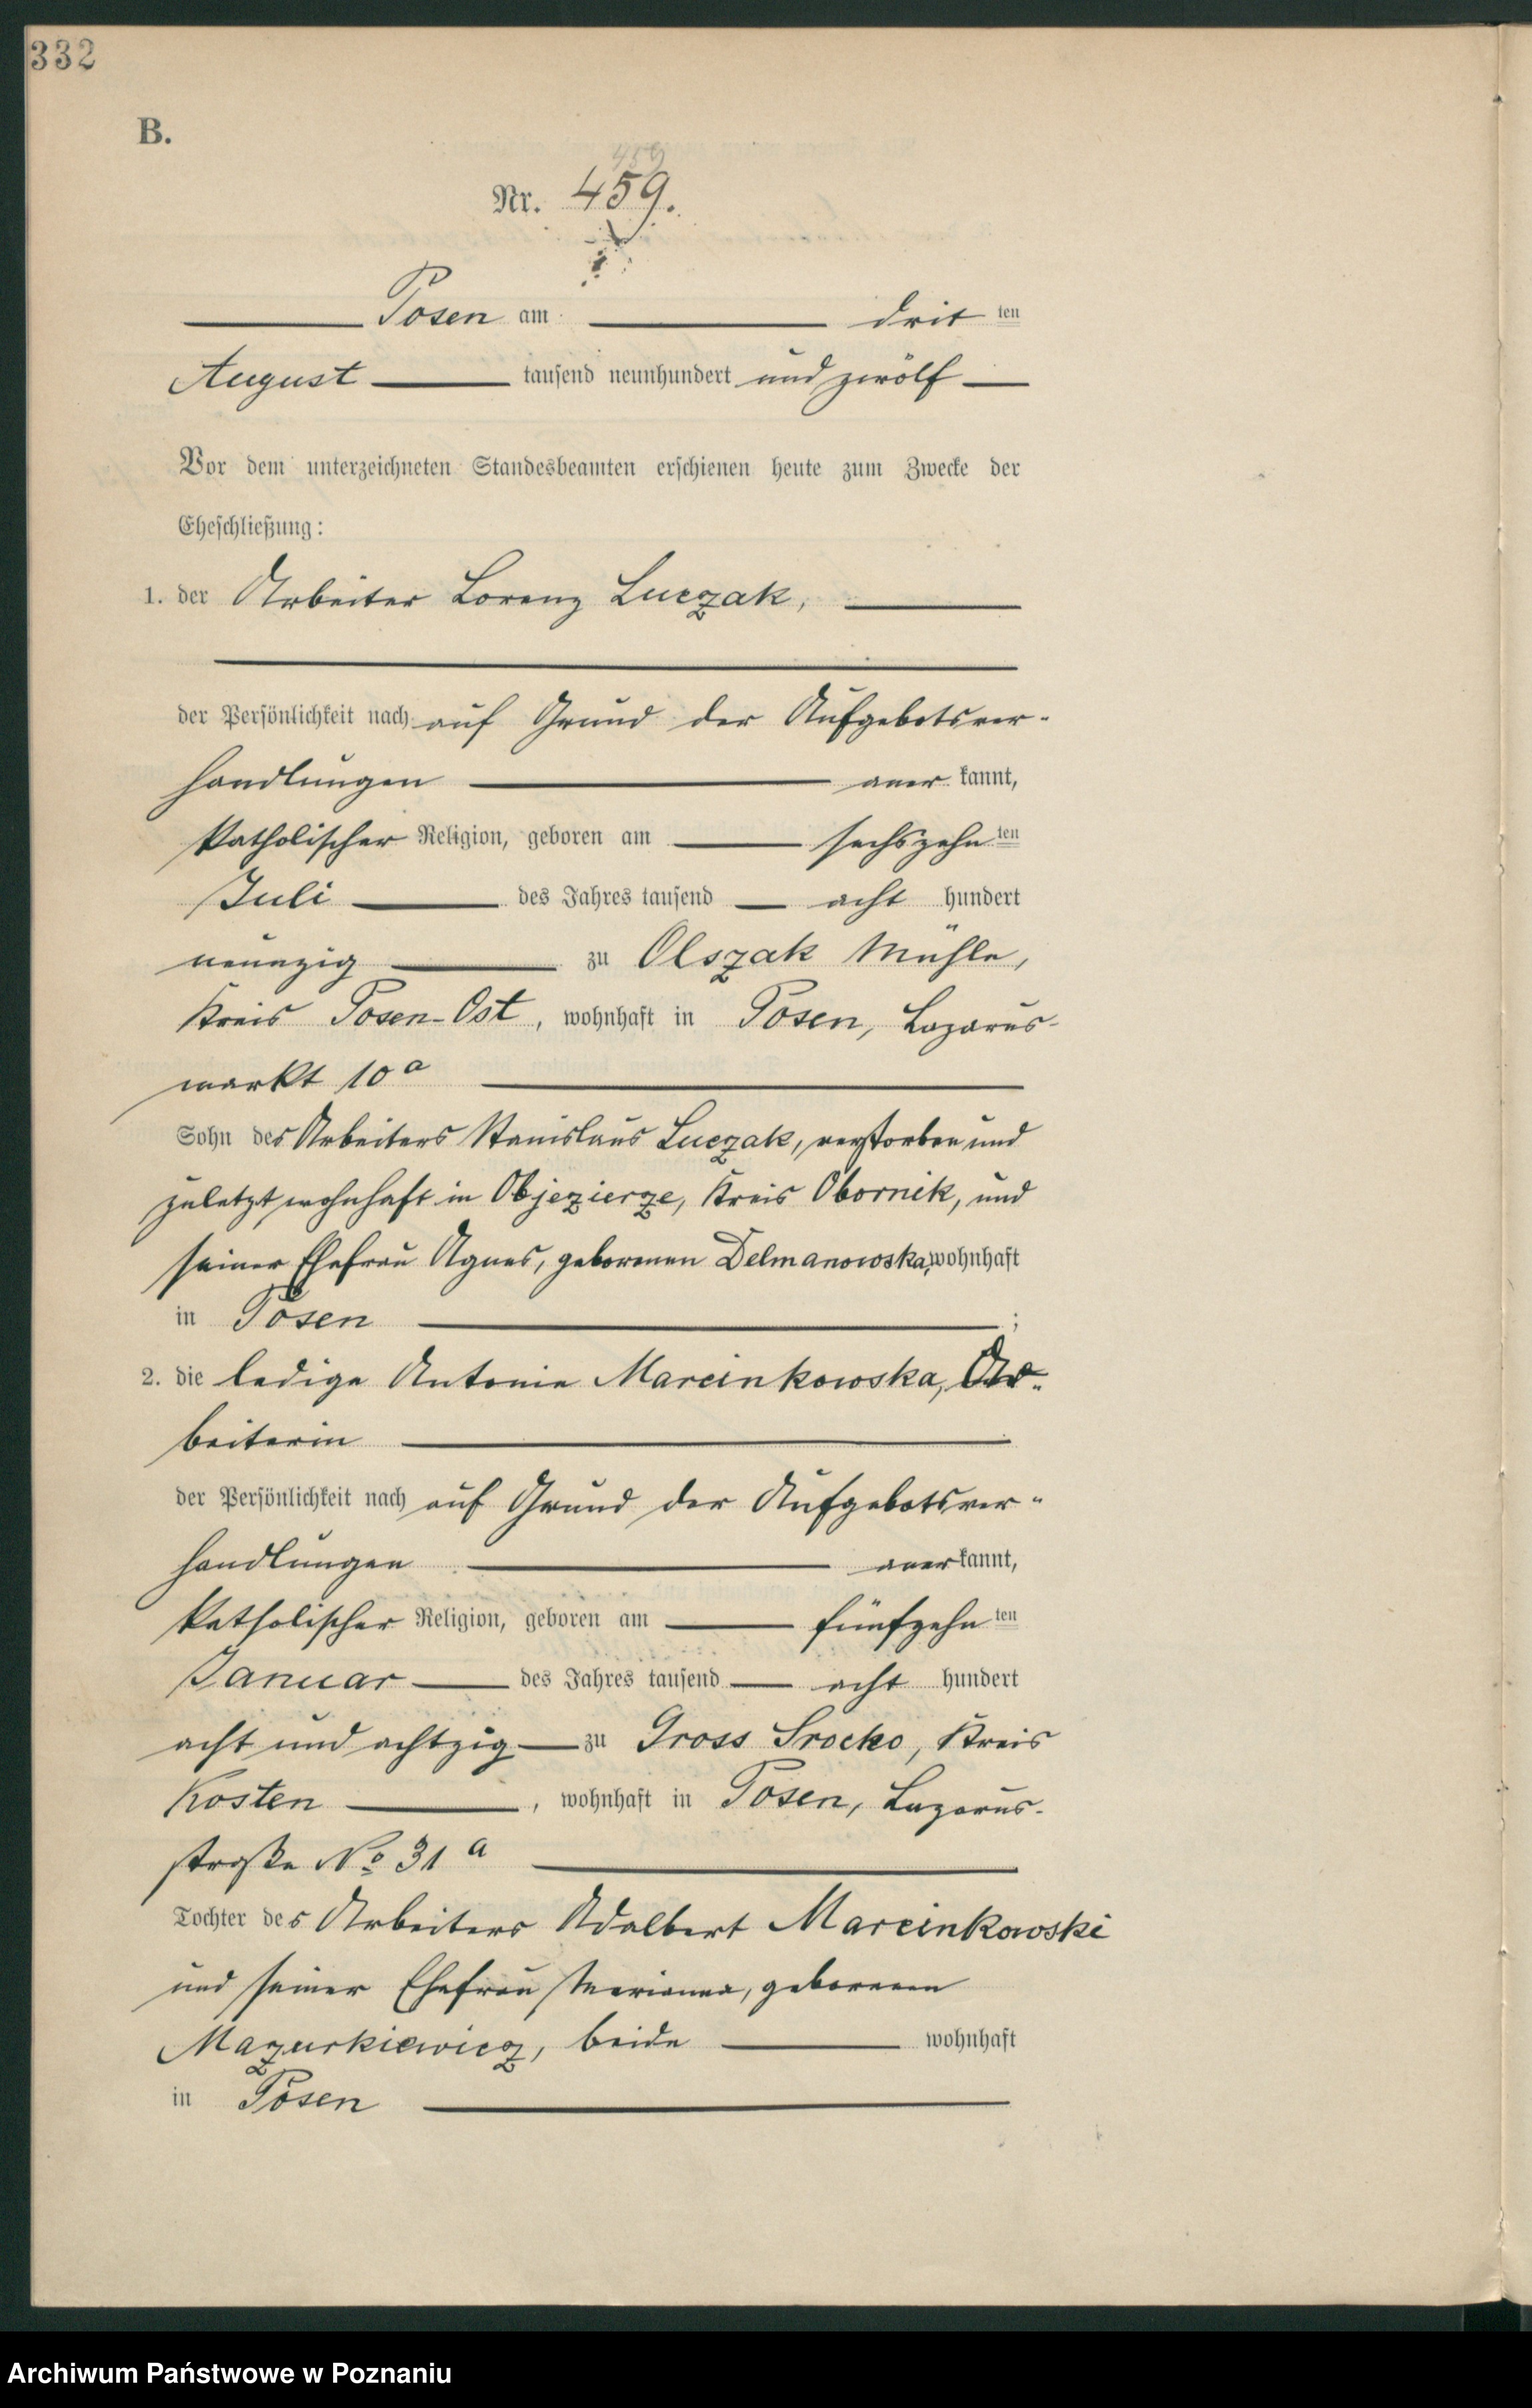 332
B.
459
Nr. 459.
Posen am dritten
August tausend neunhundert und zwölf
Vor dem unterzeichneten Standesbeamten erschienen heute zum Zwecke der
Eheschließung:
1. der Arbeiter Lorenz Luczak,
der Persönlichkeit nach auf Grund der Aufgebotsver-
handlungen anerkannt,
katholischer Religion, geboren am sechszehnten
Juli des Jahres tausend acht hundert
neunzig zu Olszak Mühle,
Kreis Posen-Ost, wohnhaft in Posen, Lazarus-
markt 10a
Sohn des Arbeiters Stanislaus Luczak, verstorben und
zuletzt wohnhaft in Objezierze, Kreis Obornik, und
seiner Ehefrau Agnes, geborenen Delmanowska, wohnhaft
in Posen ;
2. die ledige Antonie Marcinkowska, Ar-
beiterin
der Persönlichkeit nach auf Grund der Aufgebotsver-
handlungen anerkannt,
katholischer Religion, geboren am fünfzehnten
Januar des Jahres tausend acht hundert
acht und achtzig zu Gross Srocko, Kreis
Kosten, wohnhaft in Posen, Lazarus-
straße No 31a
Tochter des Arbeiters Adalbert Marcinkowski
und seiner Ehefrau Marianna, geborenen
Mazurkiewicz, beide wohnhaft
in Posen
Archiwum Państwowe w Poznaniu